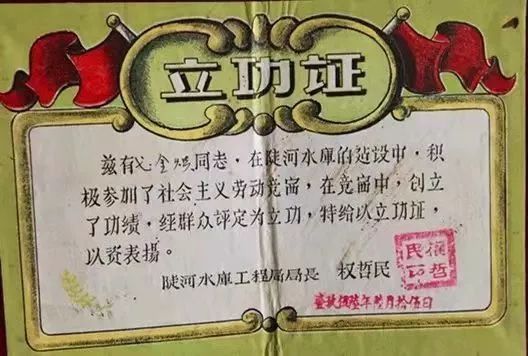 立功证
兹有金同志，在陡河水庫的建设中，积
极参加了社会主义劳动竞赛，在竞赛中，创立
了功绩，經群众评定为立功，特给以立功证，
以资表揚。
陡河水庫工程局局長 权哲民
壹玖伍陸年陸月拾伍日